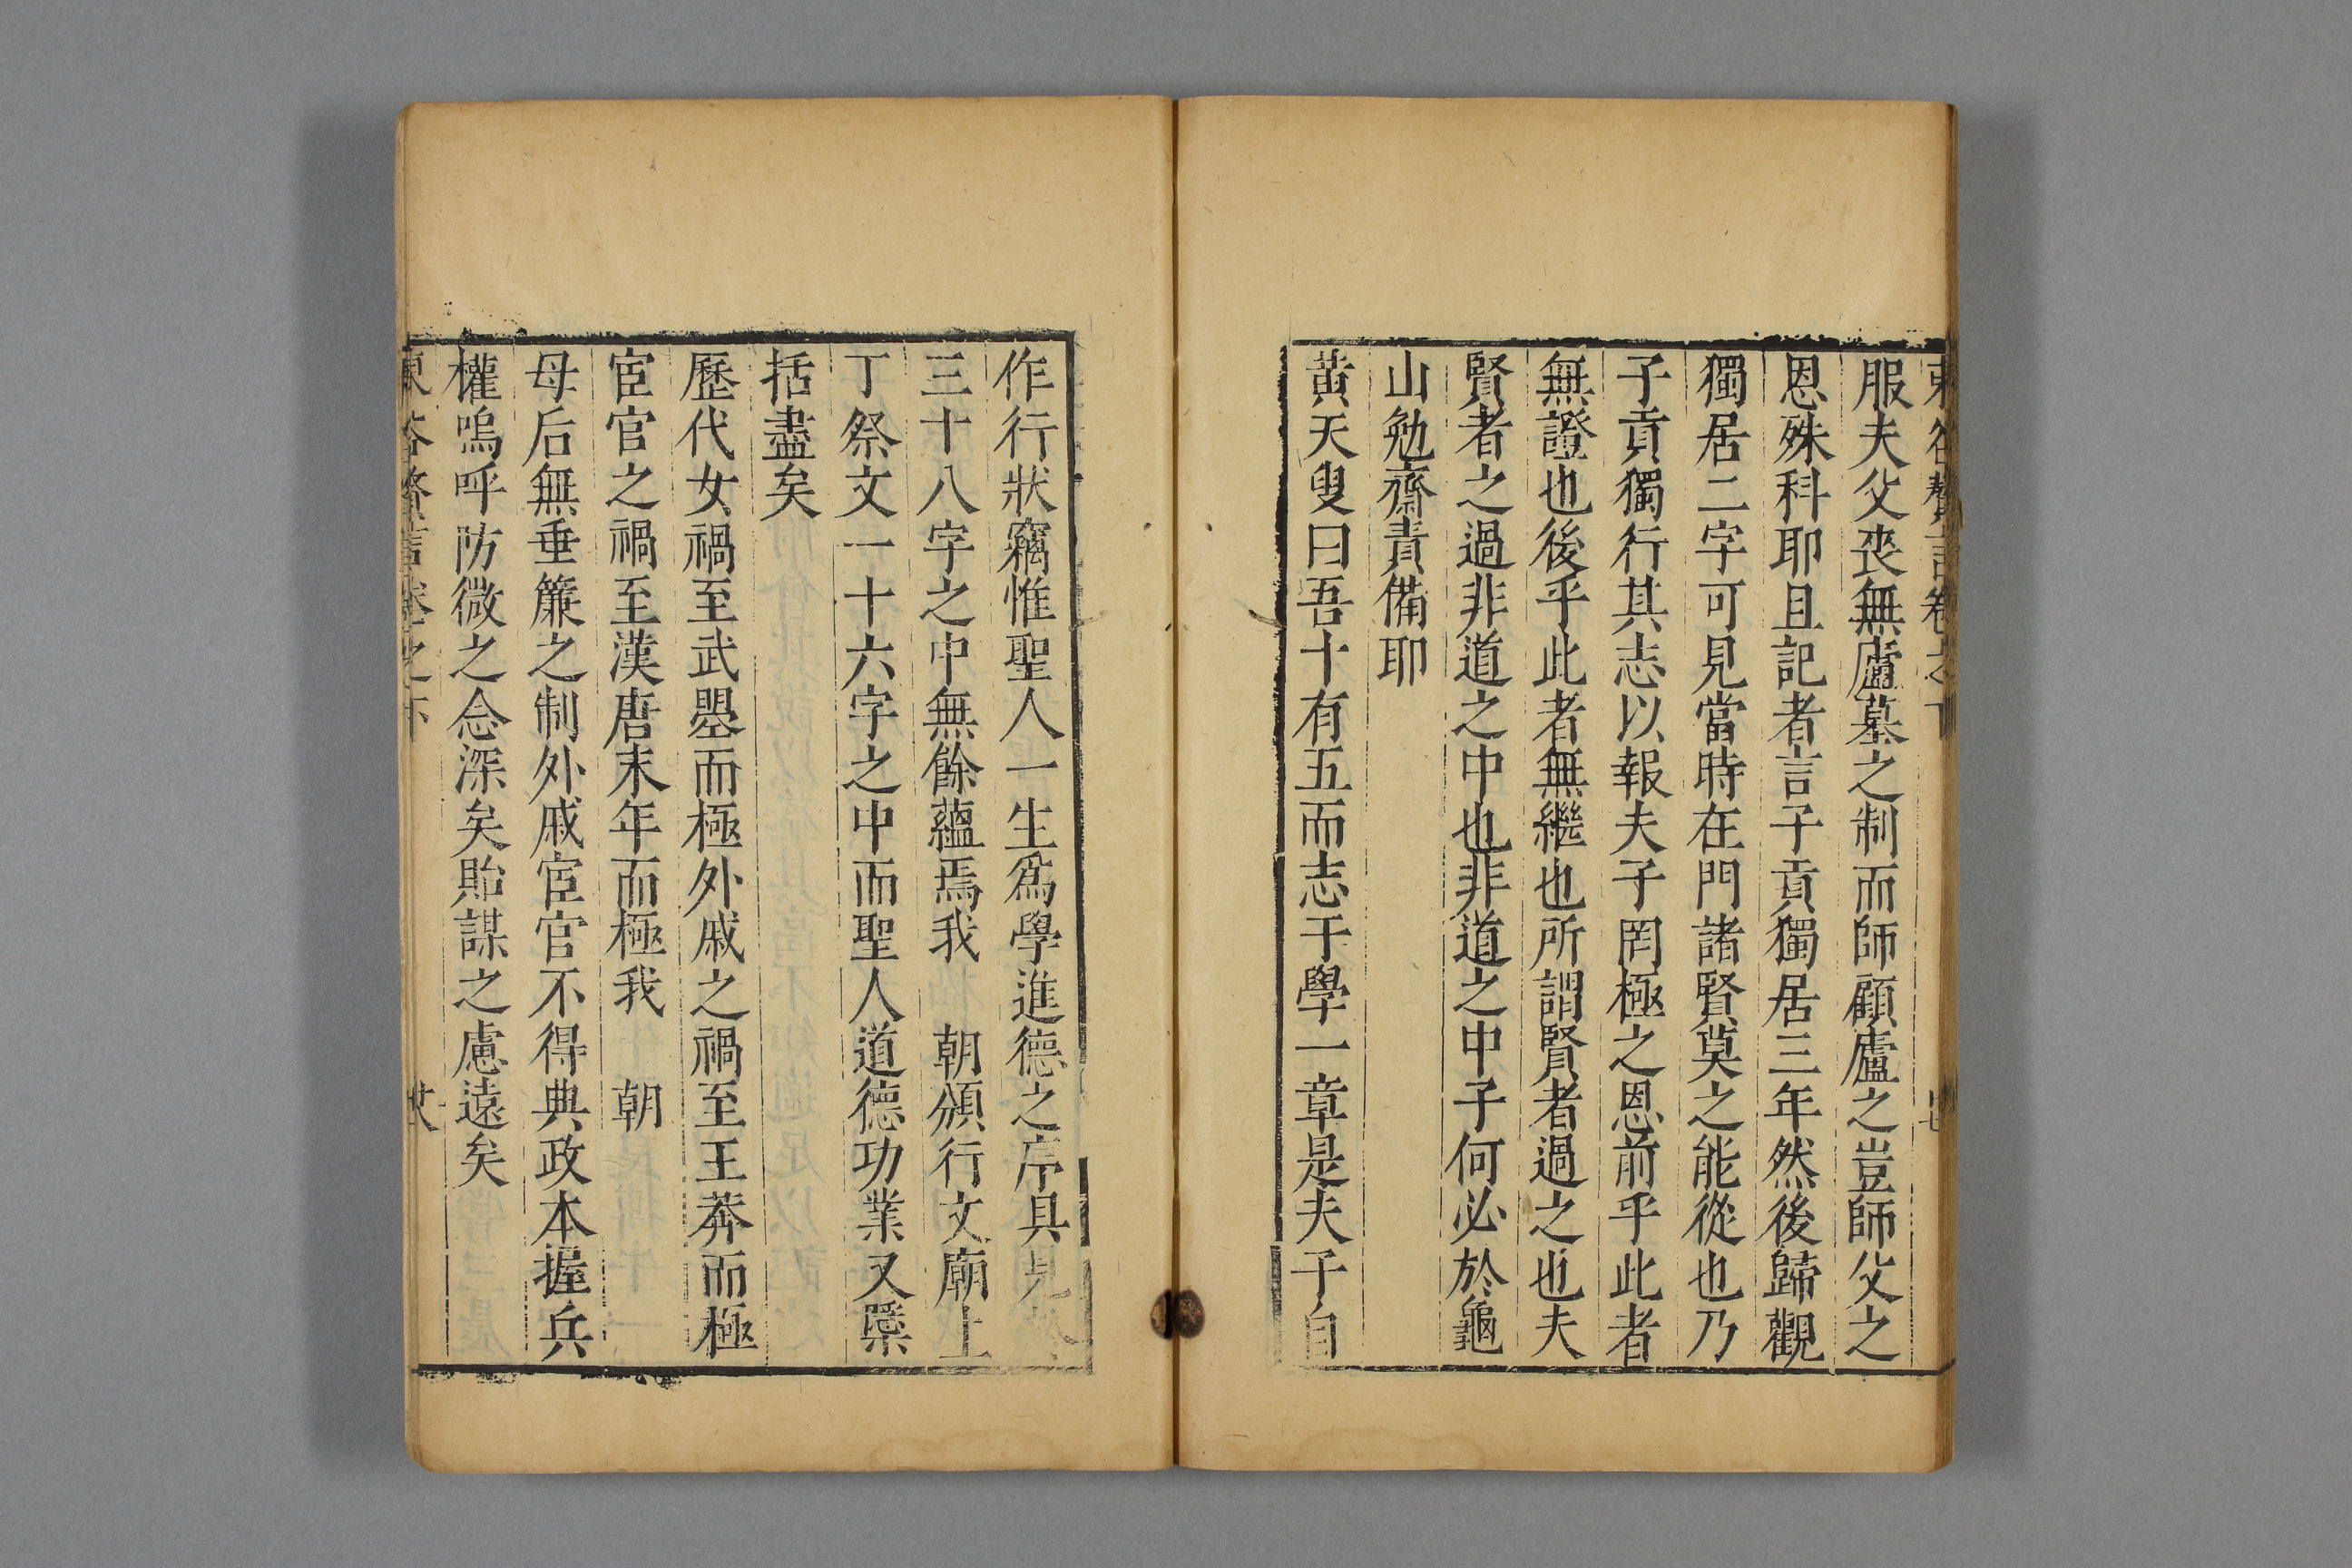 東谷贅言卷之下
服夫父喪無廬墓之制而師顧廬之豈師父之
恩殊科耶且記者言子貢獨居三年然後歸觀
獨居二字可見當時在門諸賢莫之能從也乃
子貢獨行其志以報夫子罔極之恩前乎此者
無證也後乎此者無繼也所謂賢者過之也夫
賢者之過非道之中也非道之中子何必於龜
山勉齋責備耶
黃天叟曰吾十有五而志于學一章是夫子自
作行狀竊惟聖人一生為學進德之序具見
三十八字之中無餘蘊焉我 朝頒行文廟上
丁祭文一十六字之中而聖人道德功業又槩
括盡矣
歷代女禍至武曌而極外戚之禍至王莽而極
宦官之禍至漢唐末年而極我 朝
母后無垂簾之制外戚宦官不得典政本握兵
權嗚呼防微之念深矣貽謀之慮遠矣
東谷贅言卷之下